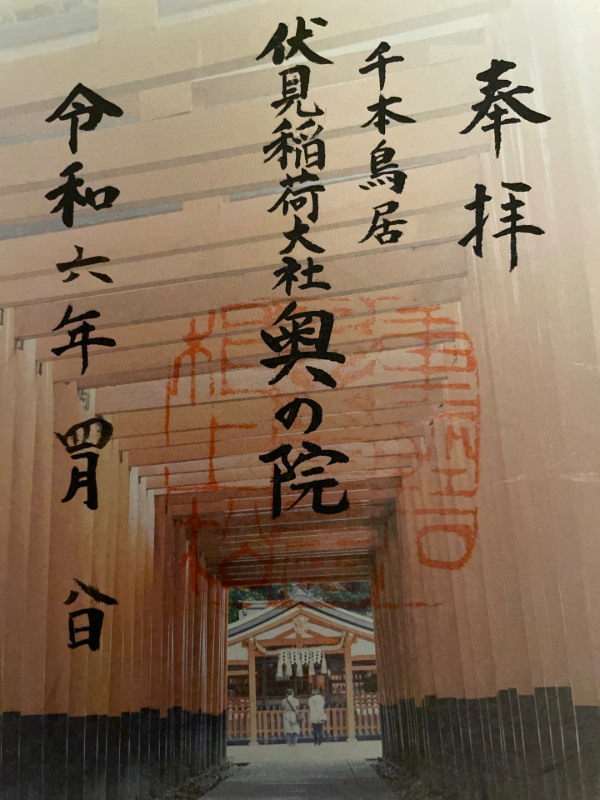 奉拝
千本鳥居
伏見稲荷大社奥の院
令和六年四月八日